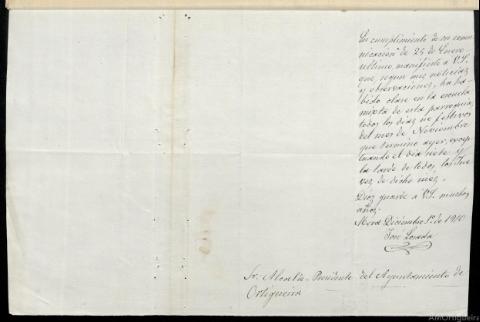 En cumplimiento de su comu-
nicacion de 25 de Enero
ultimo, manifiesto a V.S.
que, segun mis noticias
y observaciones, ha ha-
bido clase en la escuela
mixta de esta parroquia,
todos los dias no festivos
del mes de Noviembre
que termino ayer, excep-
tuando el dia siete y
la tarde de todos los Jue-
ves de dicho mes.
Dios guarde a V.S. muchos
años.
Mera Diciembre 1º de 1910
José Losada
Sr. Alcalde-Presidente del Ayuntamiento de
Ortigueira
AMOrtigueira